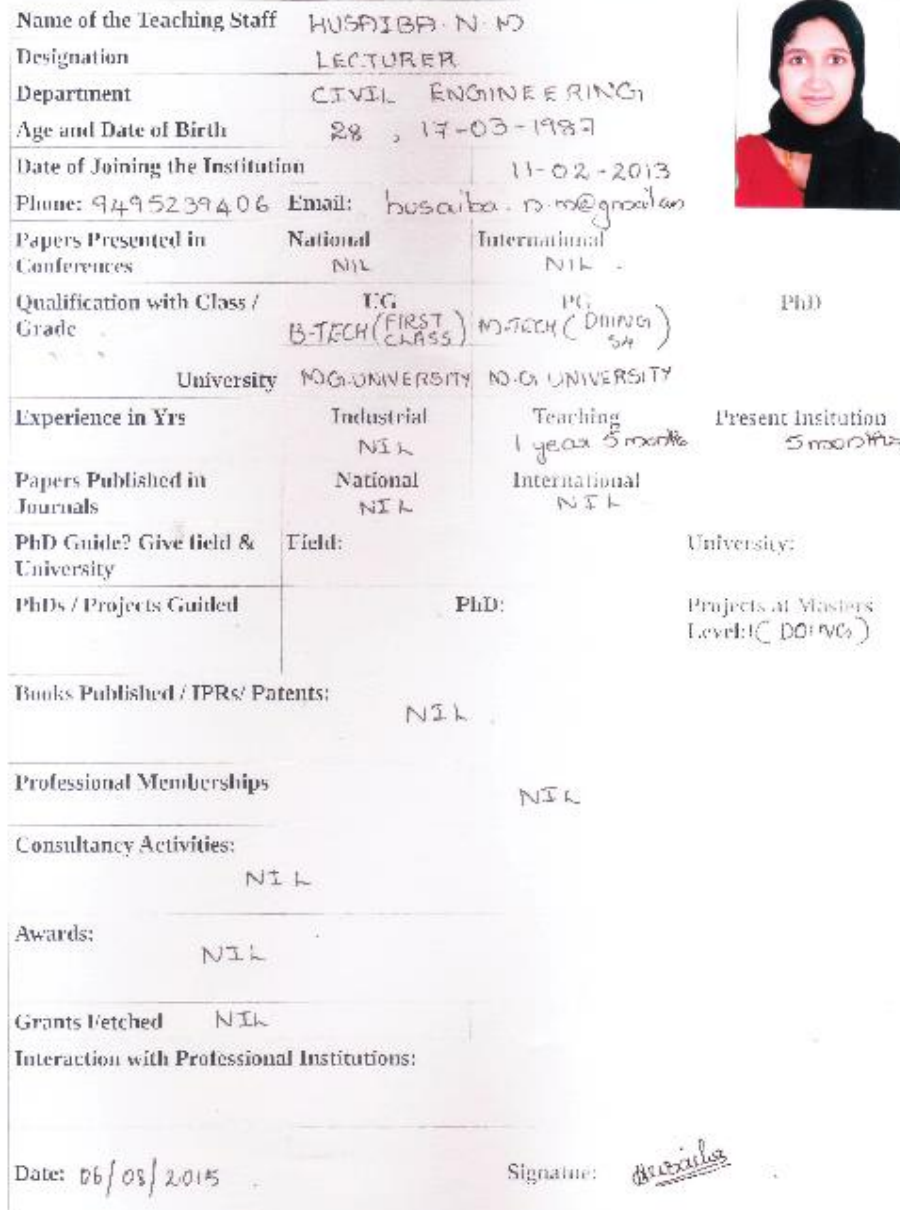 Name of the Teaching Staff HUSAIBA. N. M
Designation LECTURER
Department CIVIL ENGINEERING
Age and Date of Birth 28 , 17-03-1987
Date of Joining the Institution 11-02-2013
Phone: 9495239406 Email: husaiba.n.m@gmail.com
Papers Presented in National International
Conferences NIL NIL
Qualification with Class / UG PG PhD
Grade B-TECH (FIRST CLASS) M-TECH (DOING S4)
University M.G.UNIVERSITY M.G. UNIVERSITY
Experience in Yrs Industrial Teaching Present Insitution
NIL 1 year 5 months 5 months
Papers Published in National International
Journals NIL NIL
PhD Guide? Give field & Field: University:
University
PhDs / Projects Guided PhD: Projects at Masters
Level:1( DOING)
Books Published / IPRs/ Patents:
NIL
Professional Memberships
NIL
Consultancy Activities:
NIL
Awards:
NIL
Grants Fetched NIL
Interaction with Professional Institutions:
Date: 06/08/2015 Signature: Husaiba